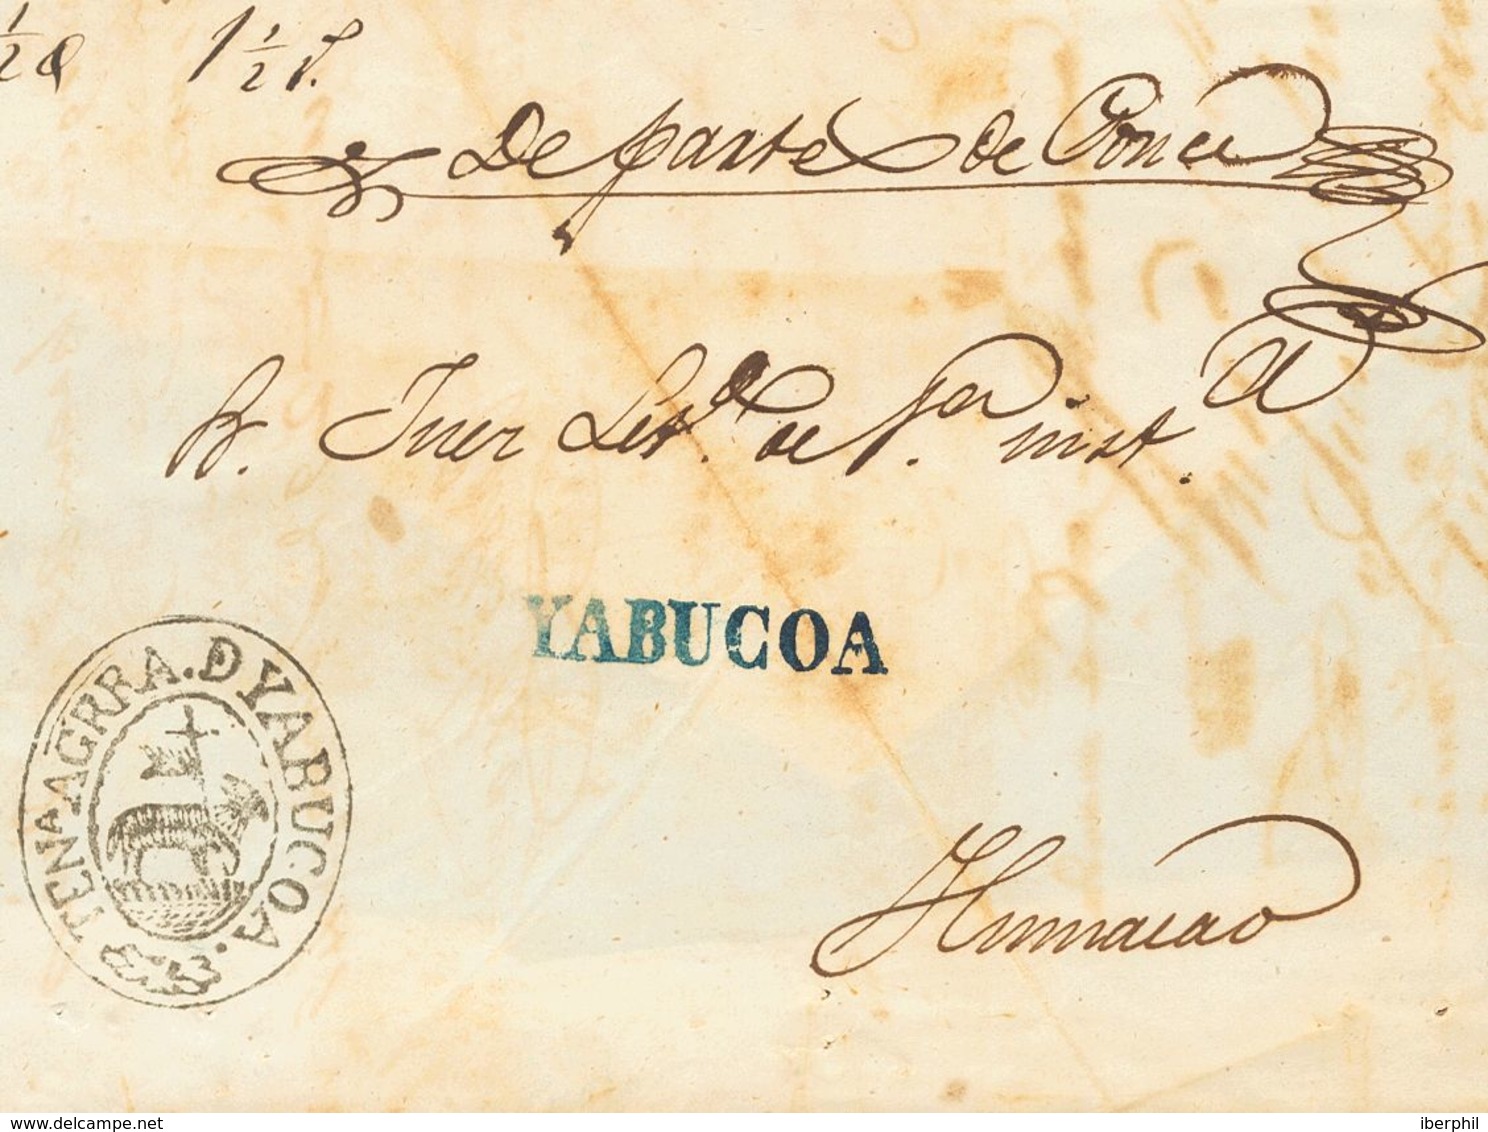 1/2 a 1 1/2 r.
De parte de Ponce
Sr. Juez Let.º de 1.ª inst.ª
YABUCOA
TENA AGRRA. D YABUCOA.
Humacao
delcampe.net
iberphil